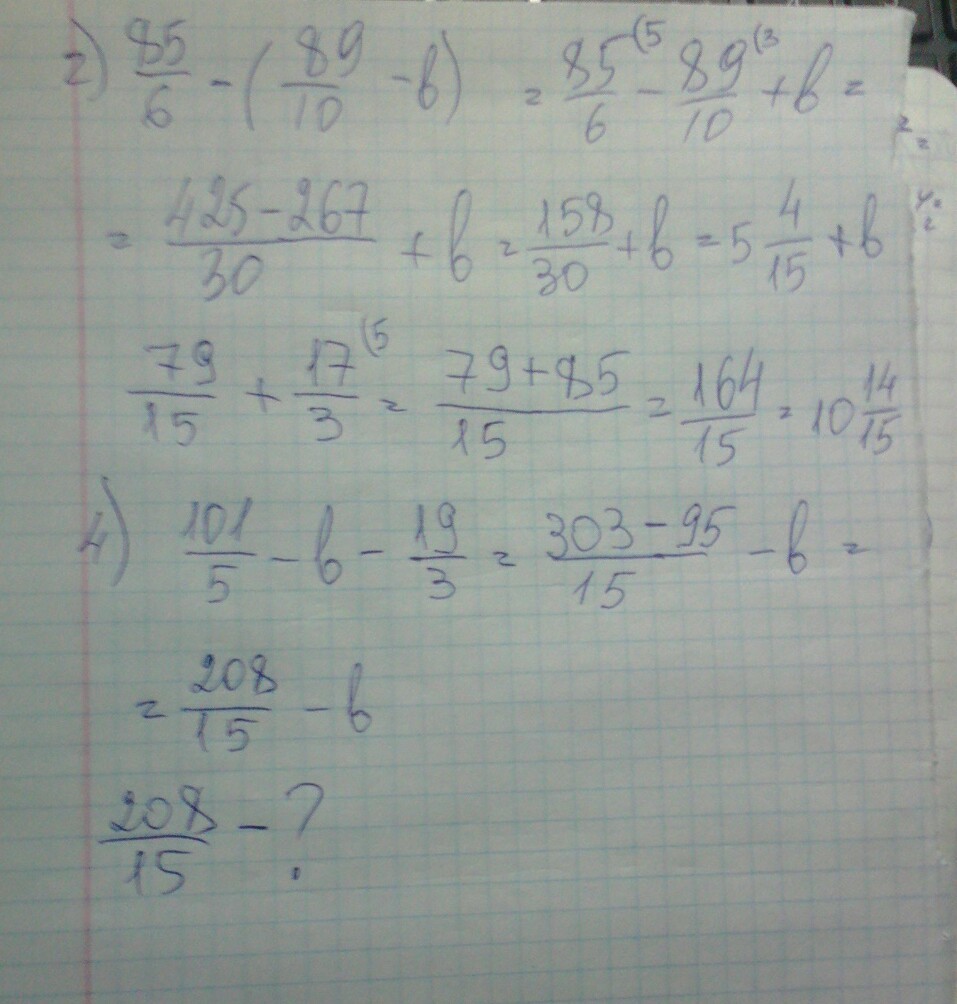 2) 85/6 - (89/10 - b) = 85/6 (5 - 89/10 (3 + b =
= 425-267/30 + b = 158/30 + b = 5 4/15 + b
79/15 + 17/3 (5 = 79+85/15 = 164/15 = 10 14/15
4) 101/5 - b - 19/3 = 303-95/15 - b =
= 208/15 - b
208/15 - ?